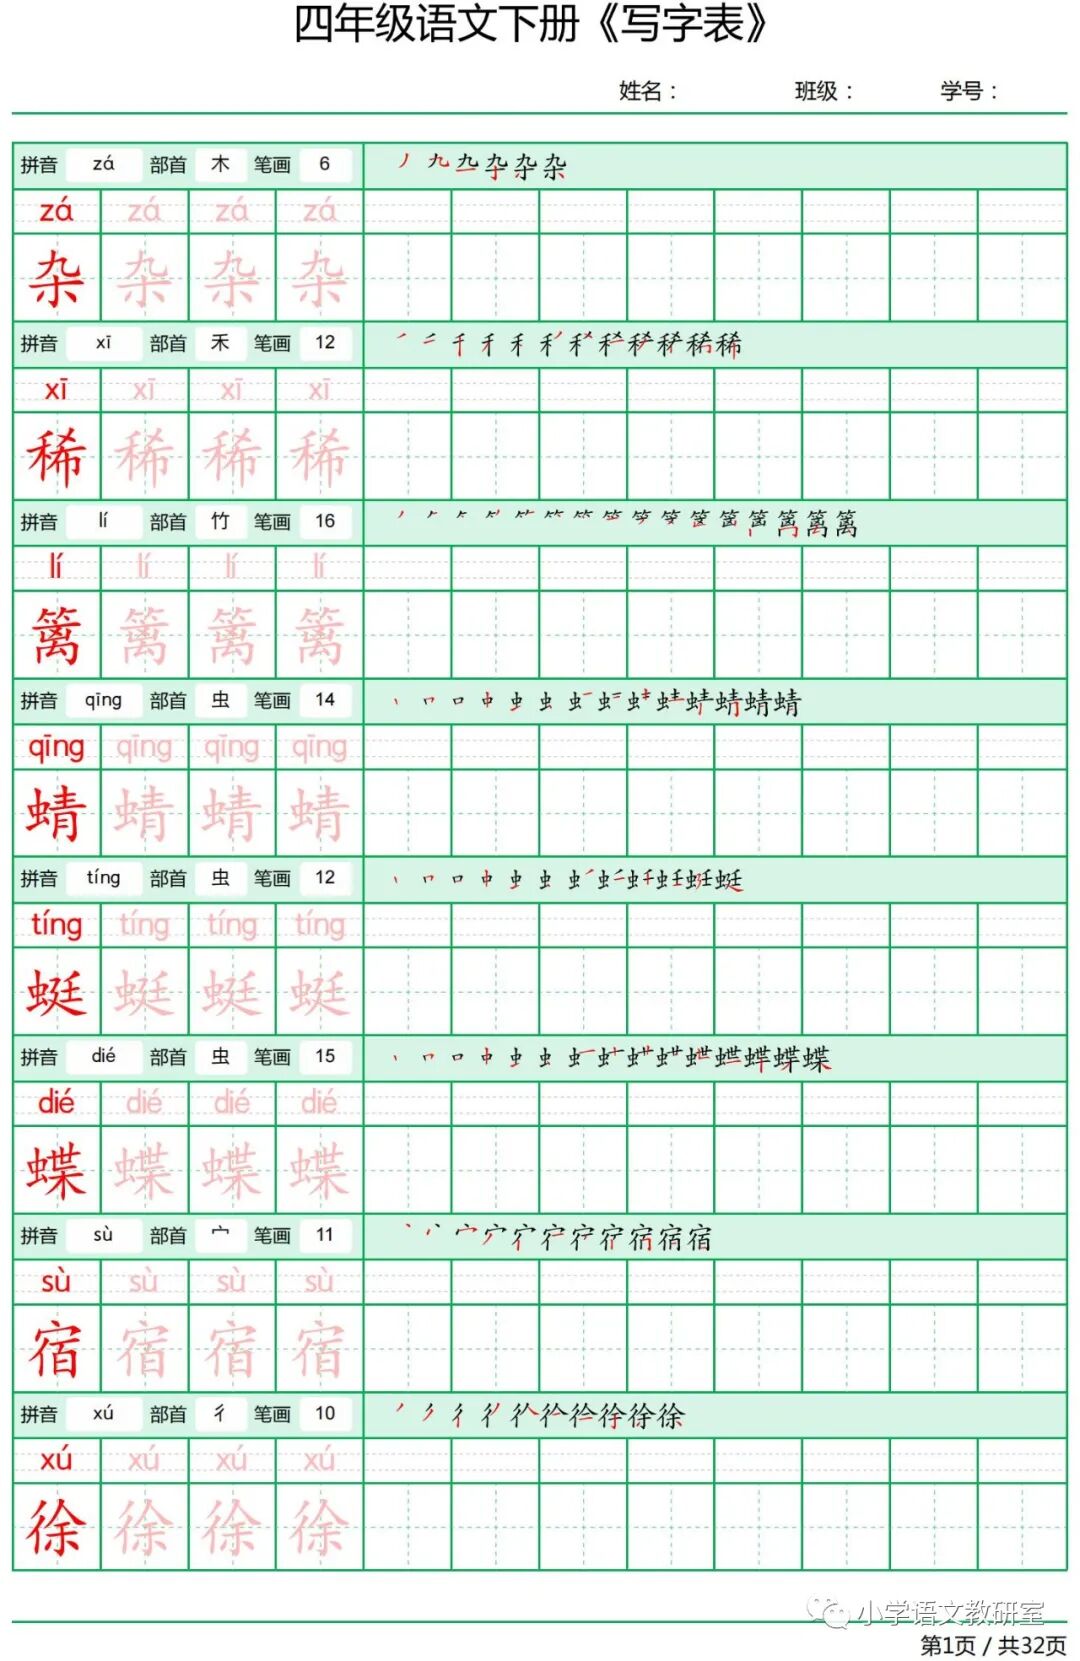 四年级语文下册《写字表》
姓名： 班级： 学号：
拼音 zá 部首 木 笔画 6
zá zá zá zá
杂 杂 杂 杂
拼音 xī 部首 禾 笔画 12
xī xī xī xī
稀 稀 稀 稀
拼音 lí 部首 竹 笔画 16
lí lí lí lí
篱 篱 篱 篱
拼音 qīng 部首 虫 笔画 14
qīng qīng qīng qīng
蜻 蜻 蜻 蜻
拼音 tíng 部首 虫 笔画 12
tíng tíng tíng tíng
蜓 蜓 蜓 蜓
拼音 dié 部首 虫 笔画 15
dié dié dié dié
蝶 蝶 蝶 蝶
拼音 sù 部首 宀 笔画 11
sù sù sù sù
宿 宿 宿 宿
拼音 xú 部首 彳 笔画 10
xú xú xú xú
徐 徐 徐 徐
小学语文教研室
第1页 / 共32页